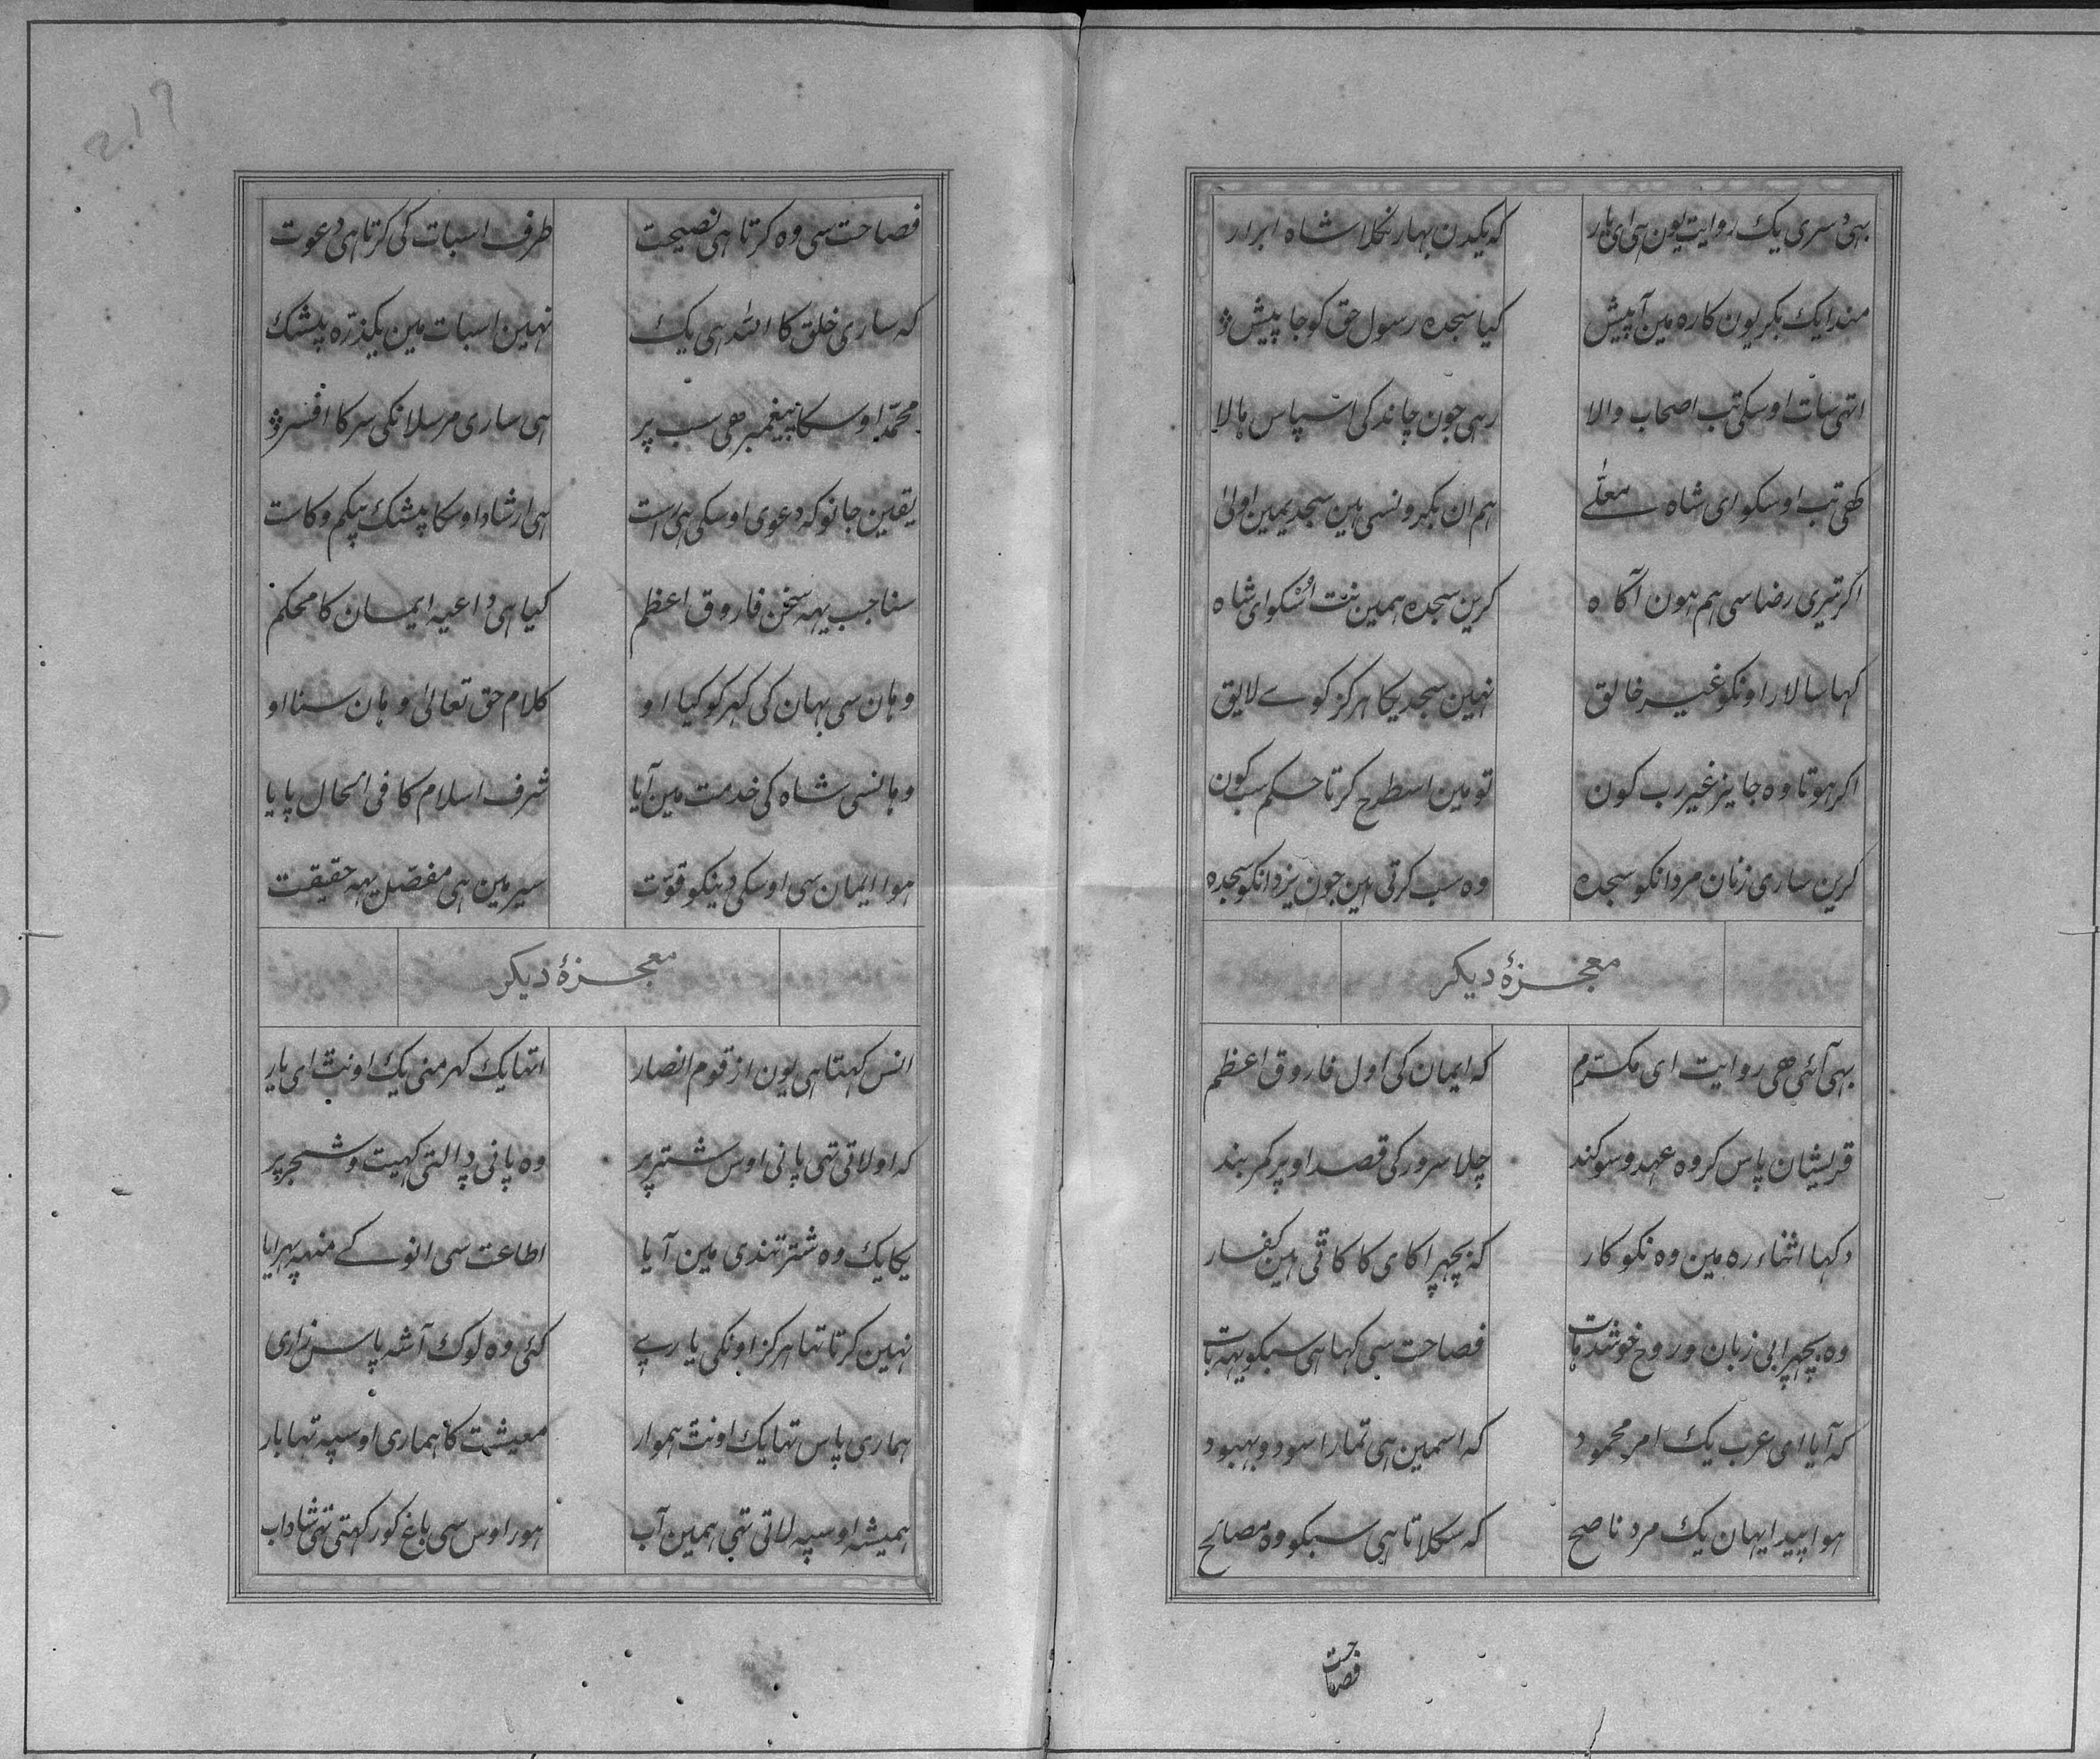 بہی دسری یک روایت یون ہی ای یار
کہ یکدن بہار نکلا شاہ ابرار
مندا یک بکریون کا رہ مین آ پیش
کیا سجدہ رسول حق کو جا پیش
اتہی سات اوسکی تب اصحاب والا
رہی جون چاند کی آسپاس ہالا
کھی تب اوسکو ای شاہ معلّے
ہم ان بکرونسی ہین سجدیمین اولیٰ
اکر تیری رضا سی ہم ہون آکاہ
کرین سجدہ ہمین نت اُسکو ای شاہ
کہا سالار اونکو غیر خالق
نہین سجدیکا ہرکز کوے لایق
اکر ہوتا وہ جایز غیر رب کون
تو مین اسطرح کرتا حکم سب کون
کرین ساری زنان مردانکو سجدہ
وہ سب کرتی ہین جون یزدانکو سجدہ
معجزۂ دیکر
بہی آئی ھی روایت ای مکرّم
کہ ایمان کی اول فاروق اعظم
قریشان پاس کر وہ عہد و سوکند
چلا سرور کی قصد اوپر کمر بند
دکہا اثناء رہ مین وہ نکو کار
کہ بچہرا کای کا کاتی ہین کفار
وہ بچہرا بی زبان و روح خوشذات
فصاحت سی کہا ہی سبکو یہہ بات
کہ آیا ای عرب یک امر محمود
کہ اسمین ہی تمارا سود و بہبود
ہوا پیدا یہان یک مرد ناصح
کہ سکلاتا ہی سبکو وہ مصالح
فصاحت
فصاحت سی وہ کرتا ہی نصیحت
طرف اسبات کی کرتا ہی دعوت
کہ ساری خلق کا اللہ ہی یک
نہین اسبات مین یکذرّہ پیشک
محمّد اوسکا پیغمبر ھی سب پر
ہی ساری مرسلانکی سر کا افسر
یقین جانو کہ دعوی اوسکی ہی راست
ہی ارشاد اوسکا پیشک پیکم و کاست
سنا جب یہہ سخن فاروق اعظم
کیا ہی داعیہ ایمان کا محکم
وہان سی بہان کی کہر کو کیا او
کلام حق تعالیٰ وہان سنا او
وہانسی شاہ کی خدمت مین آیا
شرف اسلام کا فی الحال پایا
ہوا ایمان سی اوسکی دینکو قوّت
سیر مین ہی مفصّل یہہ حقیقت
معجزۂ دیکر
انس کہتا ہی یون از قوم انصار
اتہا یک کہر منی یک اونٹ ای یار
کہ او لاتی تہی پانی اوس شتر پر
وہ پانی ڈالتی کہیت و شجر پر
یکایک وہ شتر تندی مین آیا
اطاعت سی انوکے منہہ پہرایا
نہین کرتا تہا ہرکز اونکی یارے
کئی وہ لوک آشہ پاس زاری
ہماری پاس تہا یک اونٹ ہموار
معیشت کا ہماری اوسپہ تہا بار
ہمیشہ اوسپہ لاتی تہی ہمین آب
ہور اوس سی باغ کو رکہتی تہی شاداب